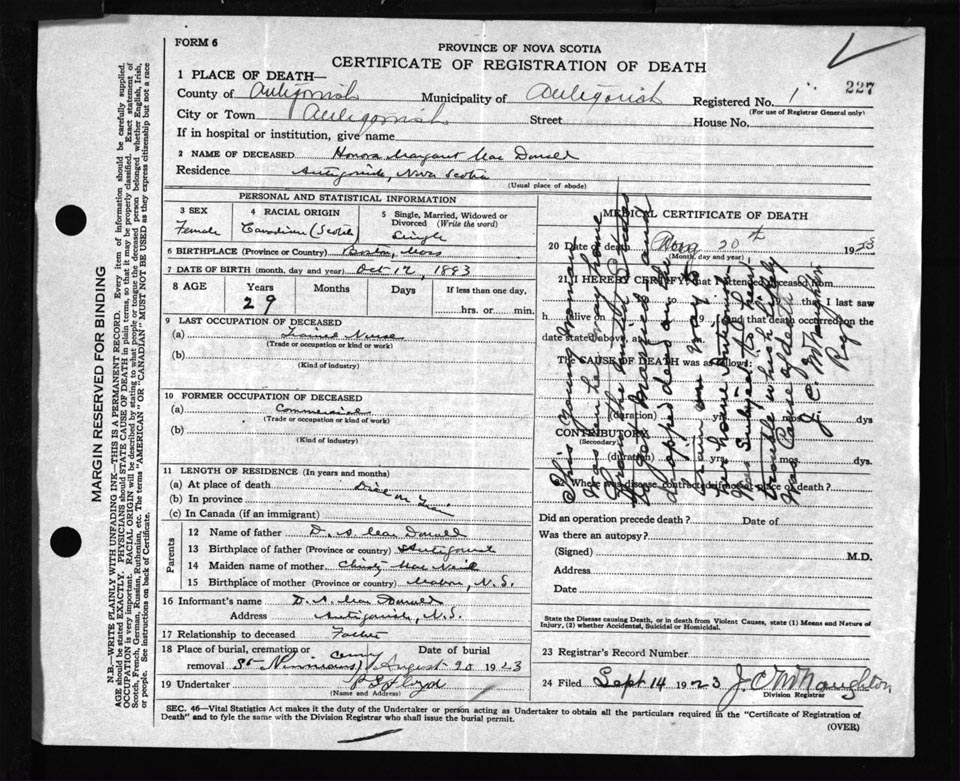 FORM 6
PROVINCE OF NOVA SCOTIA
CERTIFICATE OF REGISTRATION OF DEATH
227
1 PLACE OF DEATH—
County of Antigonish Municipality of Antigonish Registered No. 1
(For use of Registrar General only)
City or Town Antigonish Street House No.
If in hospital or institution, give name
2 NAME OF DECEASED Honora Margaret Mac Donell
Residence Antigonish, Nova Scotia
(Usual place of abode)
PERSONAL AND STATISTICAL INFORMATION
3 SEX
Female
4 RACIAL ORIGIN
Canadian (Scotch)
5 Single, Married, Widowed or Divorced (Write the word)
Single
6 BIRTHPLACE (Province or Country) Boston, Mass
7 DATE OF BIRTH (month, day and year) Oct 12, 1893
8 AGE Years Months Days If less than one day,
29 hrs. or min.
9 LAST OCCUPATION OF DECEASED
(a) Trained Nurse
(Trade or occupation or kind or work)
(b)
(Kind of industry)
10 FORMER OCCUPATION OF DECEASED
(a) Commercial
(Trade or occupation or kind or work)
(b)
(Kind of industry)
11 LENGTH OF RESIDENCE (In years and months)
(a) At place of death Died on
(b) In province
(c) In Canada (if an immigrant)
Parents
12 Name of father D. A. Mac Donell
13 Birthplace of father (Province or country) Antigonish
14 Maiden name of mother Christy Mac Neil
15 Birthplace of mother (Province or country) Mabou, N.S.
16 Informant's name D. A. Mac Donell
Address Antigonish, N.S.
17 Relationship to deceased Father
18 Place of burial, cremation or removal St Ninians Cemy
Date of burial August 20 1923
19 Undertaker P S Floyd
(Name and Address)
MEDICAL CERTIFICATE OF DEATH
20 Date of death Aug 20th 1923
(Month, day and year)
21 I HEREBY CERTIFY, that I attended deceased from
19 , to 19 , that I last saw
h alive on 19 , and that death occurred on the
date stated above at m.
THE CAUSE OF DEATH was as follows:
(duration) yrs. mos. dys
CONTRIBUTORY
(Secondary)
(duration) yrs. mos. dys.
22 Where was disease contracted if not at place of death?
This young woman
was on her way home
from
dropped dead on the
train on way to
her home Antigonish
was subject to heart
trouble which likely
was cause of death
J. C. McNaughton
Reg
Did an operation precede death? Date of
Was there an autopsy?
(Signed) M.D.
Address
Date
State the Disease causing Death, or in death from Violent Causes, state (1) Means and Nature of
Injury, (2) whether Accidental, Suicidal or Homicidal.
23 Registrar's Record Number
24 Filed Sept 14 1923 J C McNaughton
Division Registrar
SEC. 46—Vital Statistics Act makes it the duty of the Undertaker or person acting as Undertaker to obtain all the particulars required in the "Certificate of Registration of
Death" and to fyle the same with the Division Registrar who shall issue the burial permit.
(OVER)
MARGIN RESERVED FOR BINDING
N.B.—WRITE PLAINLY WITH UNFADING INK—THIS IS A PERMANENT RECORD. Every item of information should be carefully supplied.
AGE should be stated EXACTLY. PHYSICIANS should STATE CAUSE OF DEATH in plain terms, so that it may be properly classified. Exact statement of
OCCUPATION is very important. RACIAL ORIGIN will be described by stating to what people or tongue the deceased person belonged whether English, Irish,
Scotch, French, German, Russian, Ruthenian, etc. The terms "AMERICAN" OR "CANADIAN" MUST NOT BE USED as they express citizenship but not a race
or people. See instructions on back of Certificate.